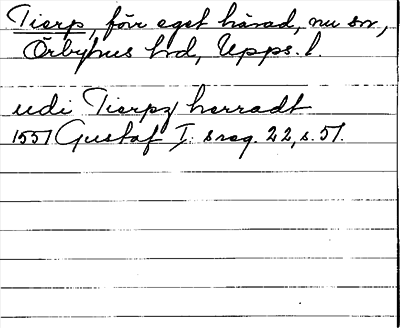 Tierp, förr eget härad, nu sn,
Örbyhus hd, Upps. l.
udi Tierpz herradt
1557 Gustaf I:s reg. 22, s. 57.